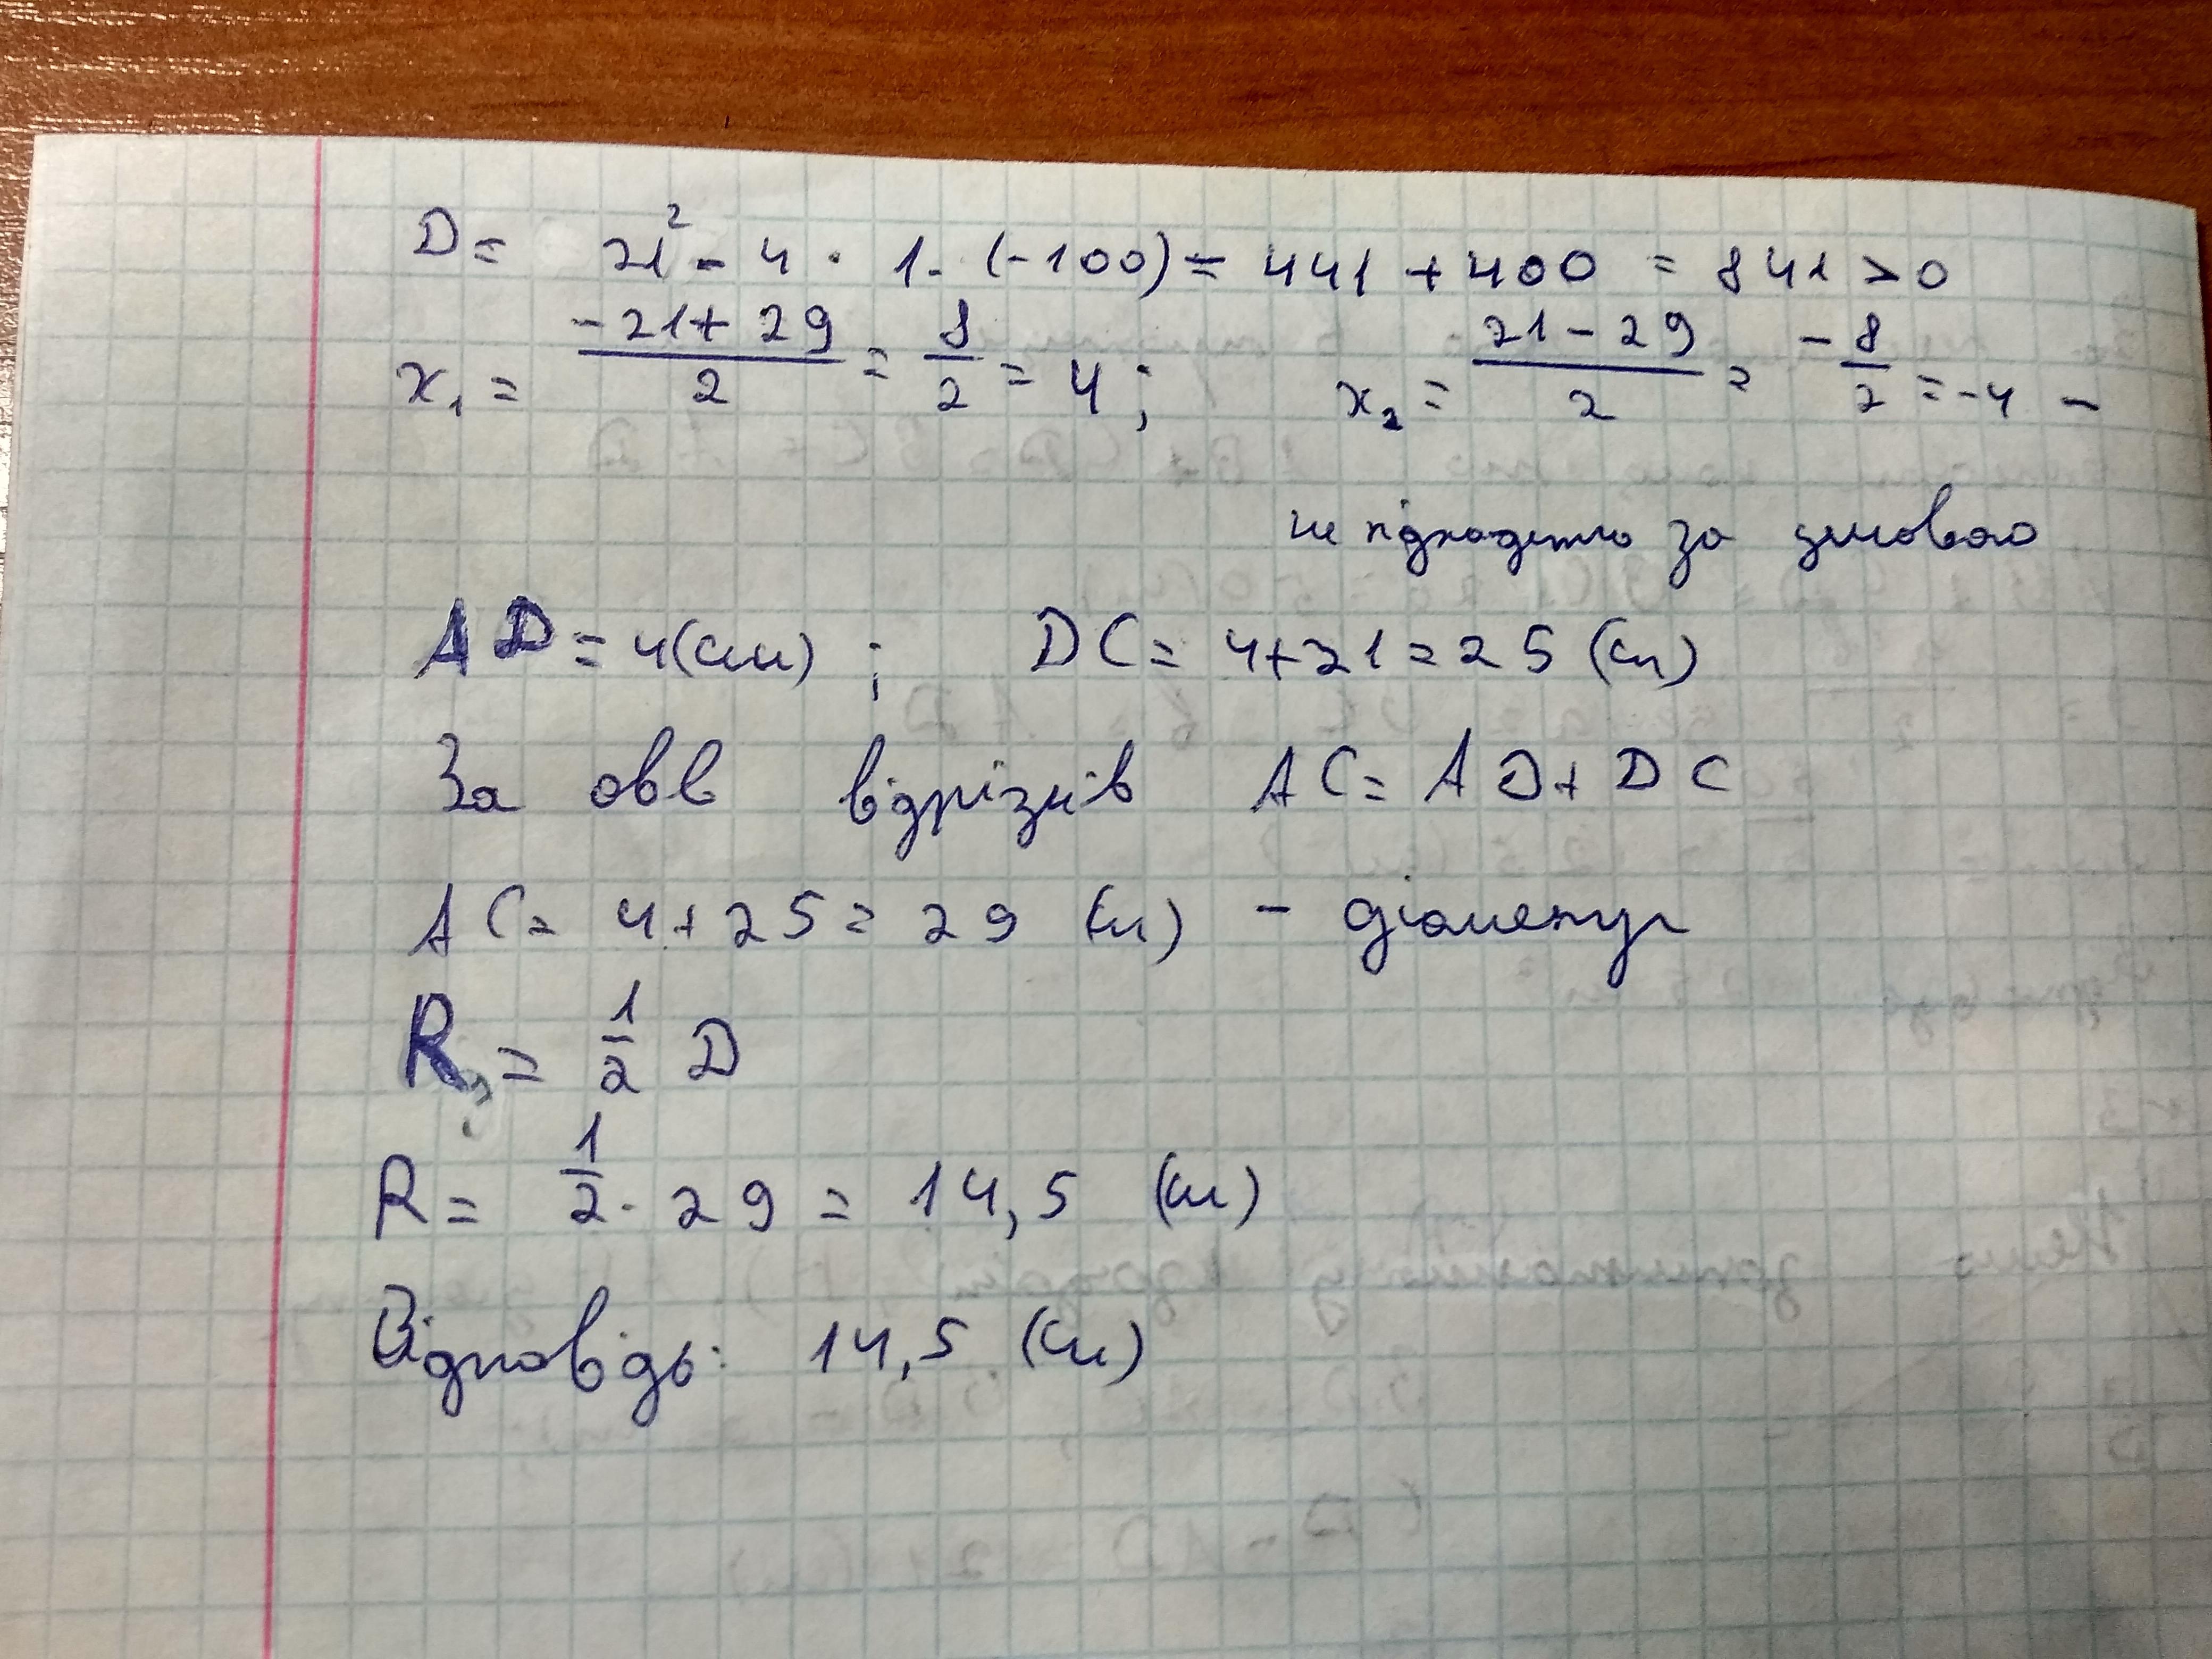 D = 21² - 4 · 1 · (-100) = 441 + 400 = 841 > 0
x₁ = (-21 + 29)/2 = 8/2 = 4; x₂ = (21 - 29)/2 = -8/2 = -4 -
не підходить за умовою
AD = 4 (см); DC = 4 + 21 = 25 (см)
За овв відрізків AC = AD + DC
AC = 4 + 25 = 29 (см) - діаметр
R = 1/2 D
R = 1/2 · 29 = 14,5 (см)
Відповідь: 14,5 (см)